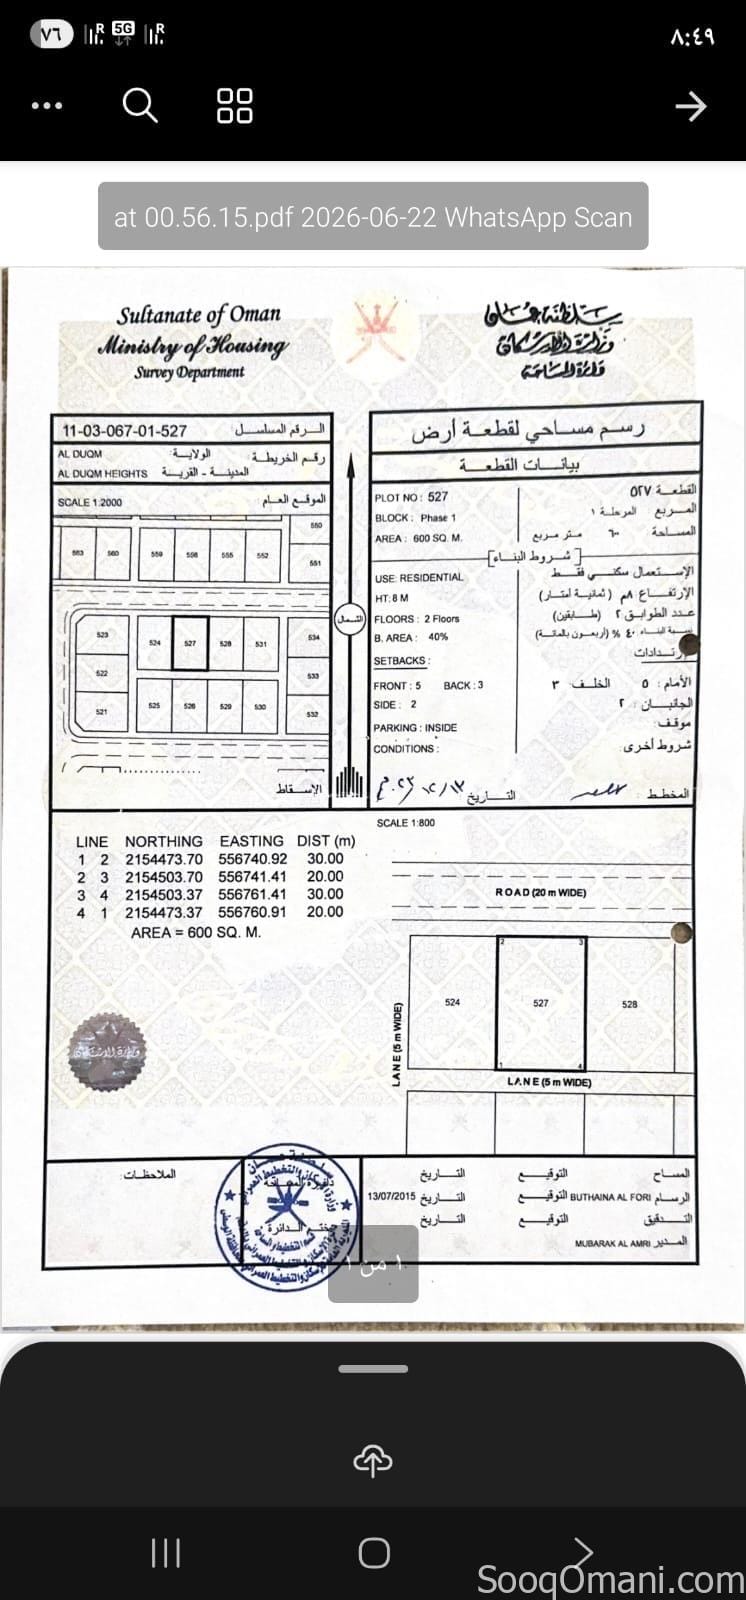 ٧٦
5G
٨:٤٩
at 00.56.15.pdf 2026-06-22 WhatsApp Scan
Sultanate of Oman
Ministry of Housing
Survey Department
سلطنة عمان
وزارة الإسكان
دائرة المساحة
11-03-067-01-527 الرقم المسلسل
AL DUQM الولاية: رقم الخريطة:
AL DUQM HEIGHTS المدينة - القرية:
SCALE 1:2000 الموقع العام
550
553 560 559 556 555 552 551
523 524 527 528 531 534
522 533
521 525 526 529 530 532
الإسقاط
الشمال
رسم مساحي لقطعة أرض
بيانات القطعة
PLOT NO: 527 القطعة ٥٢٧
BLOCK: Phase 1 المربع المرحلة ١
AREA: 600 SQ. M. المساحة ٦٠٠ متر مربع
[شروط البناء]
USE: RESIDENTIAL الإستعمال سكني فقط
HT: 8 M الإرتفاع ٨م (ثمانية أمتار)
FLOORS: 2 Floors عدد الطوابق ٢ (طابقين)
B. AREA: 40% نسبة البناء ٤٠ % (أربعون بالمائة)
SETBACKS: إرتدادات
FRONT: 5 BACK: 3 الأمام: ٥ الخلف ٣
SIDE: 2 الجانبان: ٢
PARKING: INSIDE موقف:
CONDITIONS: شروط أخرى:
المخطط: التاريخ
SCALE 1:800
LINE NORTHING EASTING DIST (m)
1 2 2154473.70 556740.92 30.00
2 3 2154503.70 556741.41 20.00
3 4 2154503.37 556761.41 30.00
4 1 2154473.37 556760.91 20.00
AREA = 600 SQ. M.
ROAD (20 m WIDE)
2 3
524 527 528
1 4
LANE (5 m WIDE)
LANE (5 m WIDE)
وزارة الإسكان
الملاحظات:
ختم الدائرة
المساح التوقيع التاريخ
الرسام BUTHAINA AL FORI التوقيع التاريخ 13/07/2015
التدقيق التوقيع التاريخ
المدير MUBARAK AL AMRI
١ من ١
SooqOmani.com